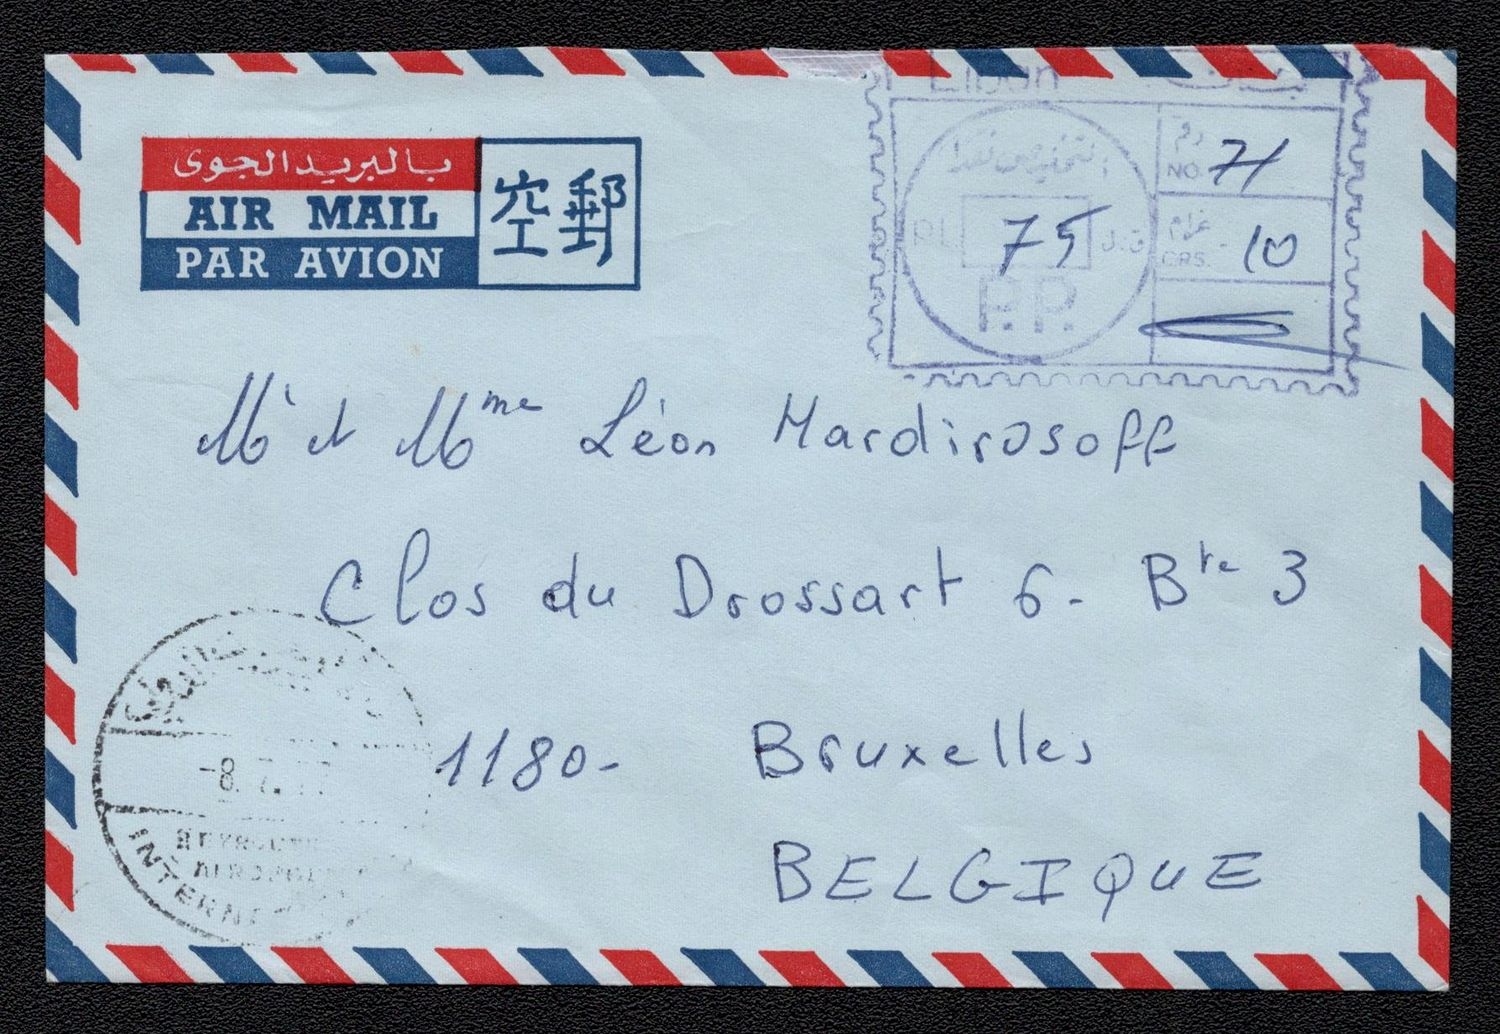 Liban
بالبريد الجوى
AIR MAIL
PAR AVION
空郵
التخليص نقدا
رقم
NO. 71
P.L. 75 ق.ل
غرام
GRS. 10
P.P.
Mr et Mme Léon Mardirosoff
Clos du Drossart 6 - Bte 3
1180 - Bruxelles
BELGIQUE
-8.7.77
BEYROUTH